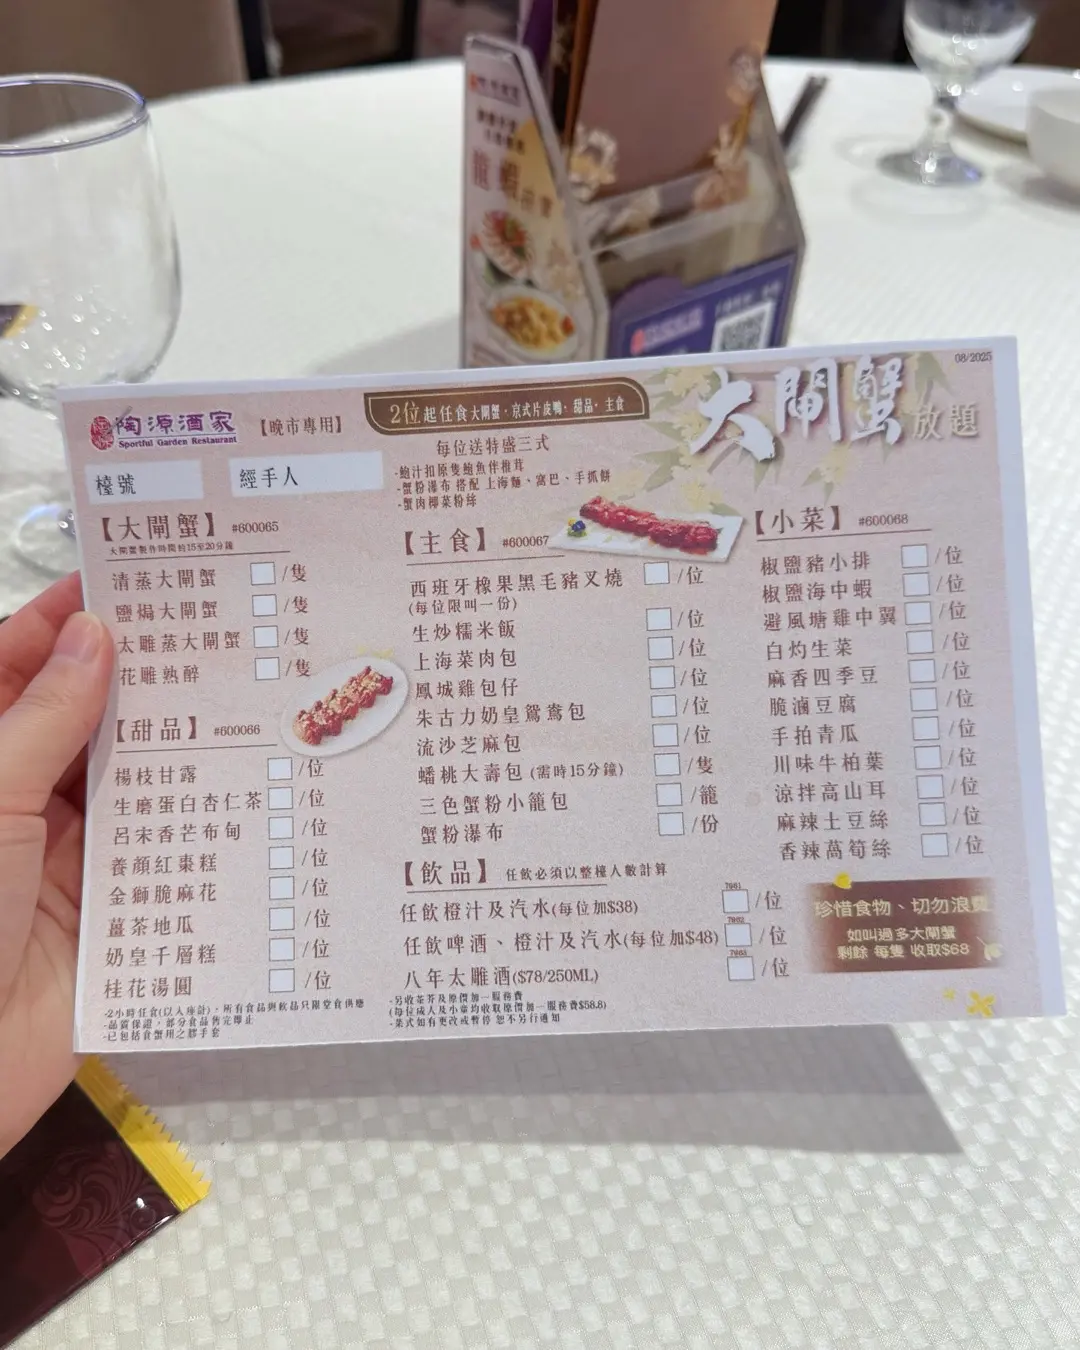 龍蝦
08/2025
陶源酒家
Sportful Garden Restaurant
【晚市專用】
2位起任食大閘蟹·京式片皮鴨·甜品·主食
大閘蟹放題
每位送特盛三式
-鮑汁扣原隻鮑魚伴推茸
-蟹粉瀑布 搭配 上海麵、窩巴、手抓餅
-蟹肉椰菜粉絲
檯號
經手人
【大閘蟹】#600065
大閘蟹製作時間約15至20分鐘
清蒸大閘蟹 /隻
鹽焗大閘蟹 /隻
太雕蒸大閘蟹 /隻
花雕熟醉 /隻
【甜品】#600066
楊枝甘露 /位
生磨蛋白杏仁茶 /位
呂宋香芒布甸 /位
養顏紅棗糕 /位
金獅脆麻花 /位
薑茶地瓜 /位
奶皇千層糕 /位
桂花湯圓 /位
-2小時任食(以入座計)，所有食品與飲品只限堂食供應
-品質保證，部分食品售完即止
-已包括食蟹用之膠手套
【主食】#600067
西班牙橡果黑毛豬叉燒 /位
(每位限叫一份)
生炒糯米飯 /位
上海菜肉包 /位
鳳城雞包仔 /位
朱古力奶皇鴛鴦包 /位
流沙芝麻包 /位
蟠桃大壽包 (需時15分鐘) /隻
三色蟹粉小籠包 /籠
蟹粉瀑布 /份
【飲品】任飲必須以整檯人數計算
任飲橙汁及汽水(每位加$38) 7961 /位
任飲啤酒、橙汁及汽水(每位加$48) 7962 /位
八年太雕酒($78/250ML) 7963 /位
-另收茶芥及原價加一服務費
(每位成人及小童均收取原價加一服務費$58.8)
-菜式如有更改或暫停 恕不另行通知
【小菜】#600068
椒鹽豬小排 /位
椒鹽海中蝦 /位
避風塘雞中翼 /位
白灼生菜 /位
麻香四季豆 /位
脆滷豆腐 /位
手拍青瓜 /位
川味牛柏葉 /位
涼拌高山耳 /位
麻辣土豆絲 /位
香辣萵筍絲 /位
珍惜食物、切勿浪費
如叫過多大閘蟹
剩餘 每隻 收取$68